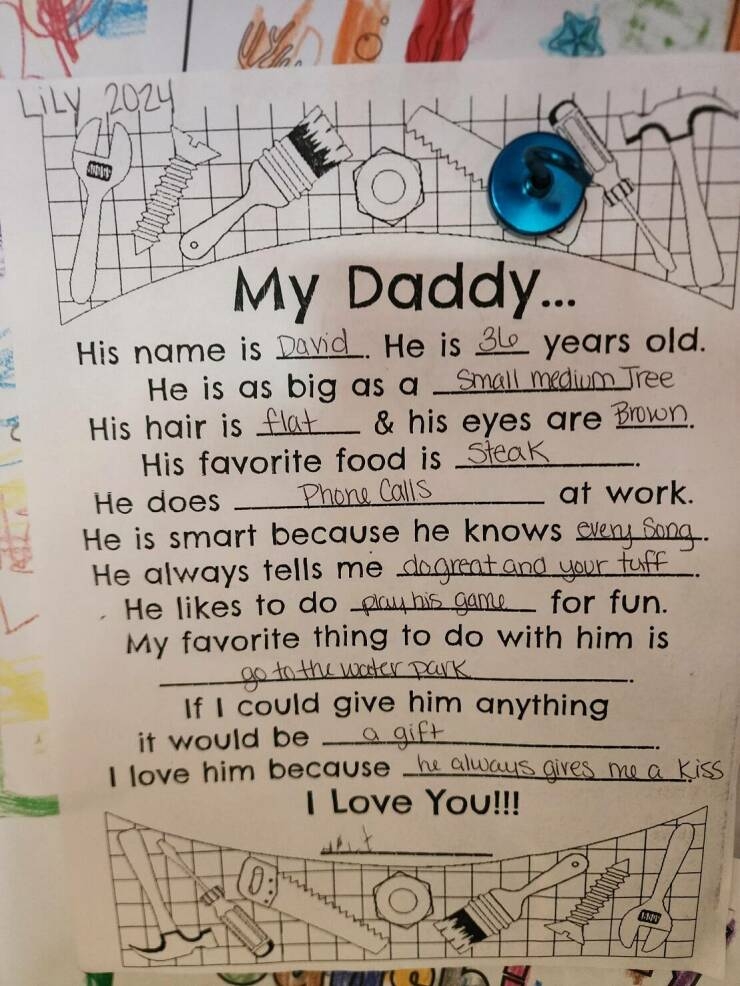 LiLY 2024
My Daddy...
His name is David. He is 36 years old.
He is as big as a Small medium Tree
His hair is flat & his eyes are Brown.
His favorite food is Steak.
He does Phone Calls at work.
He is smart because he knows every Song.
He always tells me do great and your tuff.
He likes to do play his game for fun.
My favorite thing to do with him is
go to the water park.
If I could give him anything
it would be a gift.
I love him because he always gives me a kiss
I Love You!!!